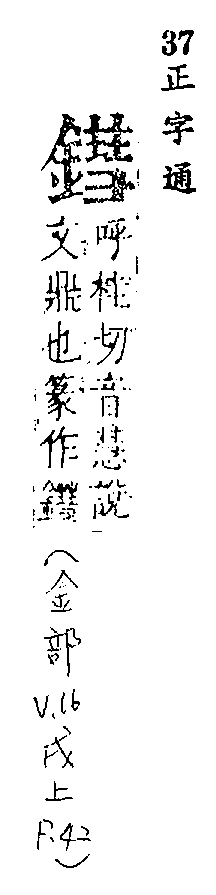 37 正字通
鏏
呼桂切音慧說
文鼎也篆作
(金部 V.16 戌上 P.42)